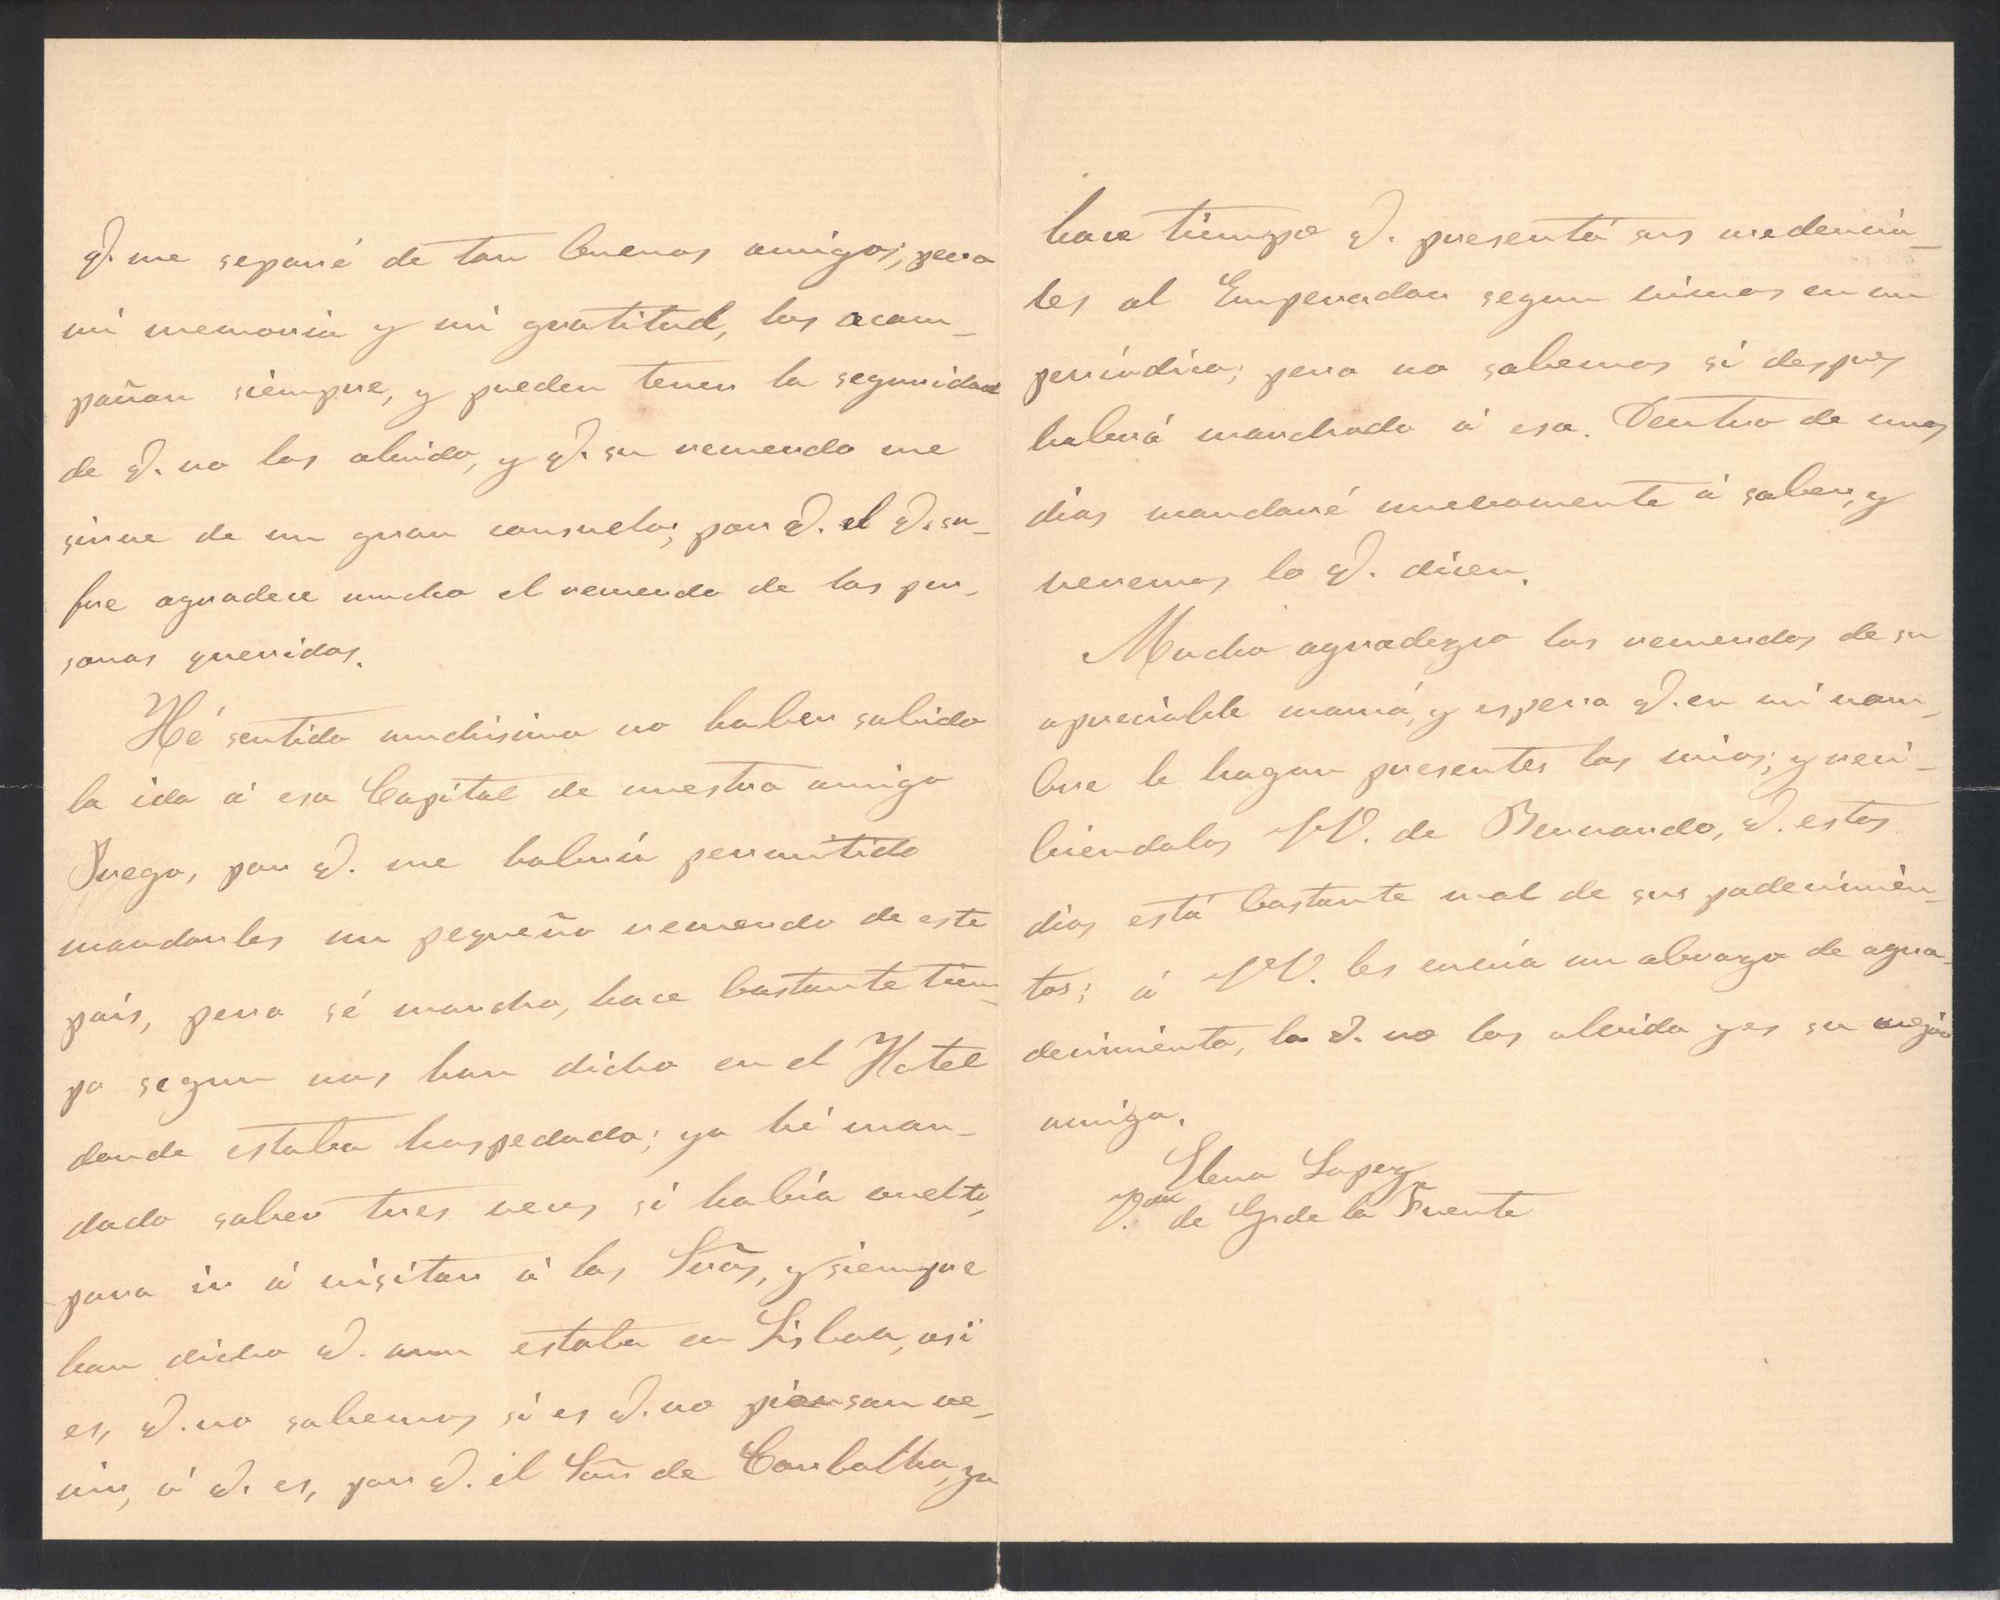 q. me separé de tan buenos amigos; pero
mi memoria y mi gratitud, los acom-
pañan siempre, y pueden tener la seguridad
de q. no los olvido, y q. su recuerdo me
sirve de un gran consuelo; por q. el q. su-
fre agradece mucho el recuerdo de las per-
sonas queridas.
Hé sentido muchisimo no haber sabido
la ida á esa Capital de nuestro amigo
por q. me habria permitido
mandarles un pequeño recuerdo de este
país, pero sé marcho, hace bastante tiem-
po segun nos han dicho en el Hotel
donde estaba hospedado; ya hé man-
dado saber tres veces si había vuelto,
para ir á visitar á las Srãs, y siempre
han dicho q. aun estaba en Lisboa, asi
es, q. no sabemos si es q. no piensan ve-
nir, ó q. es, por q. el Sõr de ya
hace tiempo q. presentó sus credencia-
les al Emperador segun vimos en un
periódico; pero no sabemos si despues
habrá marchado á esa. Dentro de unos
dias mandaré nuevamente á saber, y
veremos lo q. dicen.
Mucho agradezco los recuerdos de su
apreciable mamá, y espero q. en mi nom-
bre le hagan presentes los mios; y reci-
biendolos VV. de Bernardo, q. estos
dias está bastante mal de sus padecimien-
tos; á VV. les envía un abrazo de agra-
decimiento, la q. no los olvida y es su mejor
amiga.
Elena Lopez
V.da de G. de la Fuente